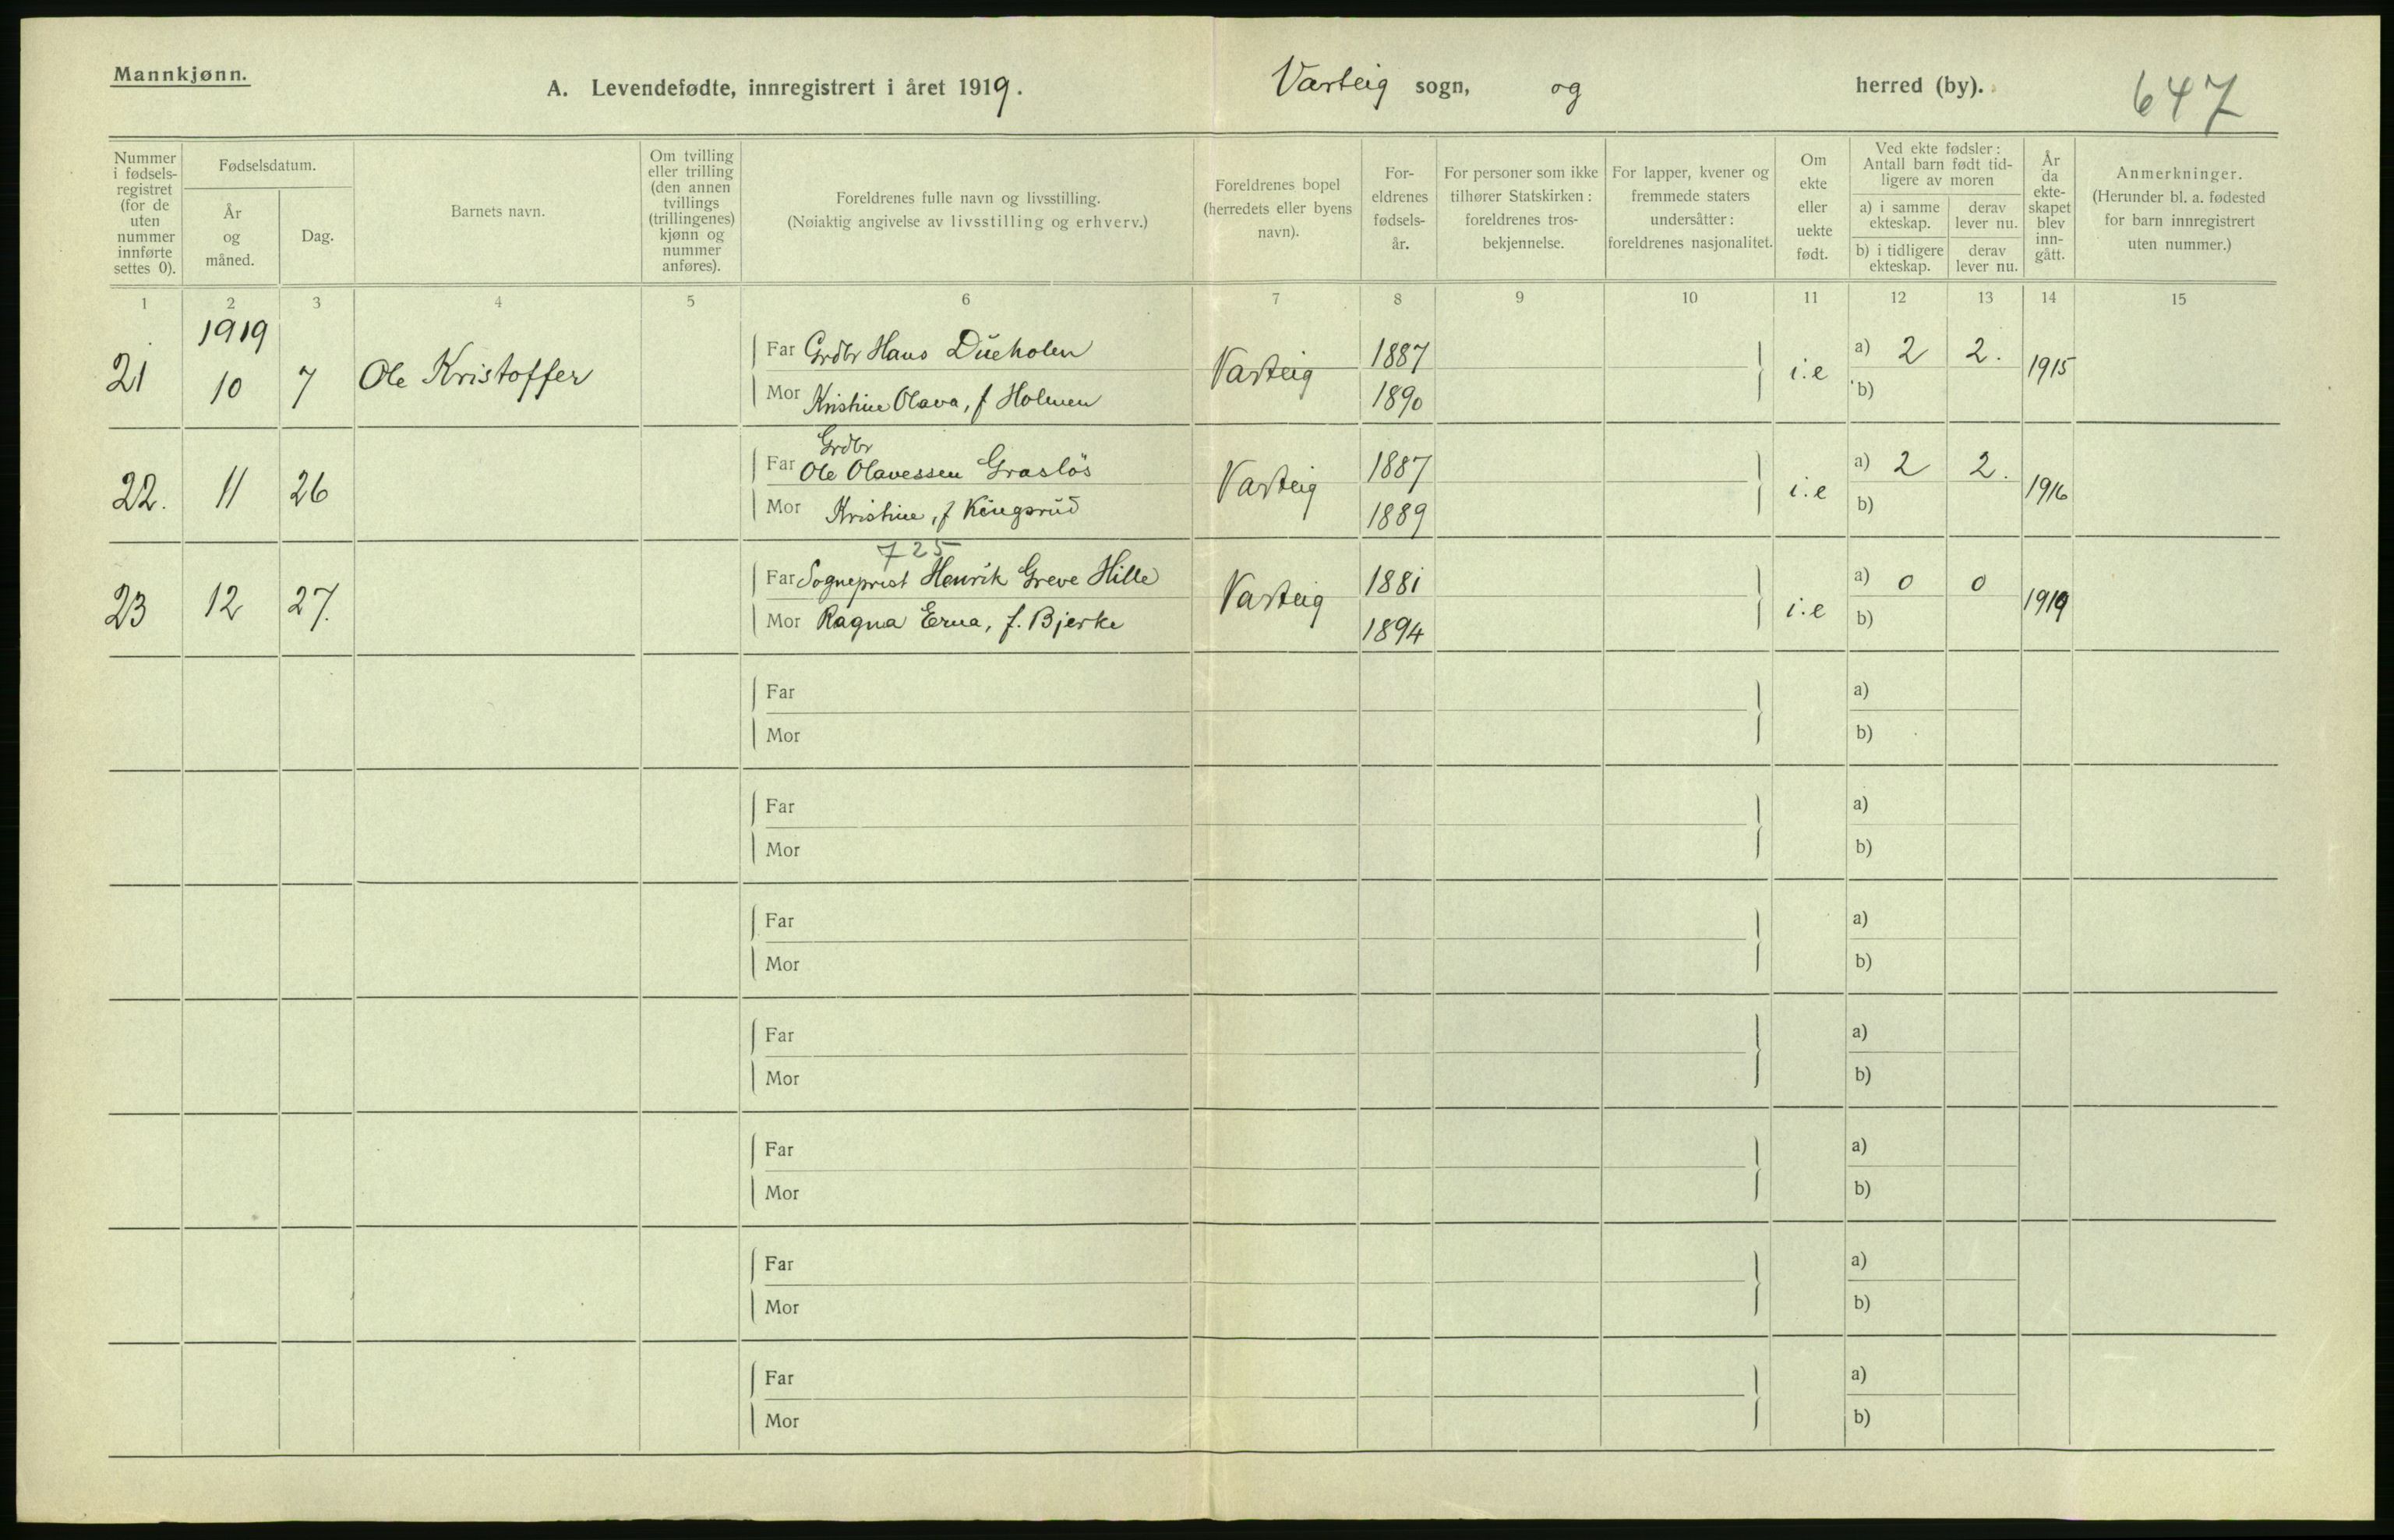 Mannkjønn.
A. Levendefødte, innregistrert i året 1919. Varteig sogn, og herred (by).
647
Nummer i fødsels-registret (for de uten nummer innførte settes 0).
Fødselsdatum.
År og måned.
Dag.
Barnets navn.
Om tvilling eller trilling (den annen tvillings (trillingenes) kjønn og nummer anføres).
Foreldrenes fulle navn og livsstilling.
(Nøiaktig angivelse av livsstilling og erhverv.)
Foreldrenes bopel (herredets eller byens navn).
For-eldrenes fødsels-år.
For personer som ikke tilhører Statskirken: foreldrenes tros-bekjennelse.
For lapper, kvener og fremmede staters undersåtter: foreldrenes nasjonalitet.
Om ekte eller uekte født.
Ved ekte fødsler: Antall barn født tid-ligere av moren
a) i samme ekteskap.
derav lever nu.
b) i tidligere ekteskap.
derav lever nu.
År da ekte-skapet blev inn-gått.
Anmerkninger.
(Herunder bl. a. fødested for barn innregistrert uten nummer.)
1 2 3 4 5 6 7 8 9 10 11 12 13 14 15
1919
21 10 7 Ole Kristoffer Far Grdbr Hans Dueholen Varteig 1887 i.e a) 2 2. 1915
Mor Kristine Olava, f Holmen 1890 b)
Grdbr
22. 11 26 Far Ole Olavessen Grasløs Varteig 1887 i.e a) 2 2. 1916
Mor Kristine, f Kingsrud 1889 b)
725
23 12 27. Far Sogneprest Henrik Greve Hille Varteig 1881 i.e a) 0 0 1919
Mor Ragna Erna, f. Bjerke 1894 b)
Far a)
Mor b)
Far a)
Mor b)
Far a)
Mor b)
Far a)
Mor b)
Far a)
Mor b)
Far a)
Mor b)
Far a)
Mor b)